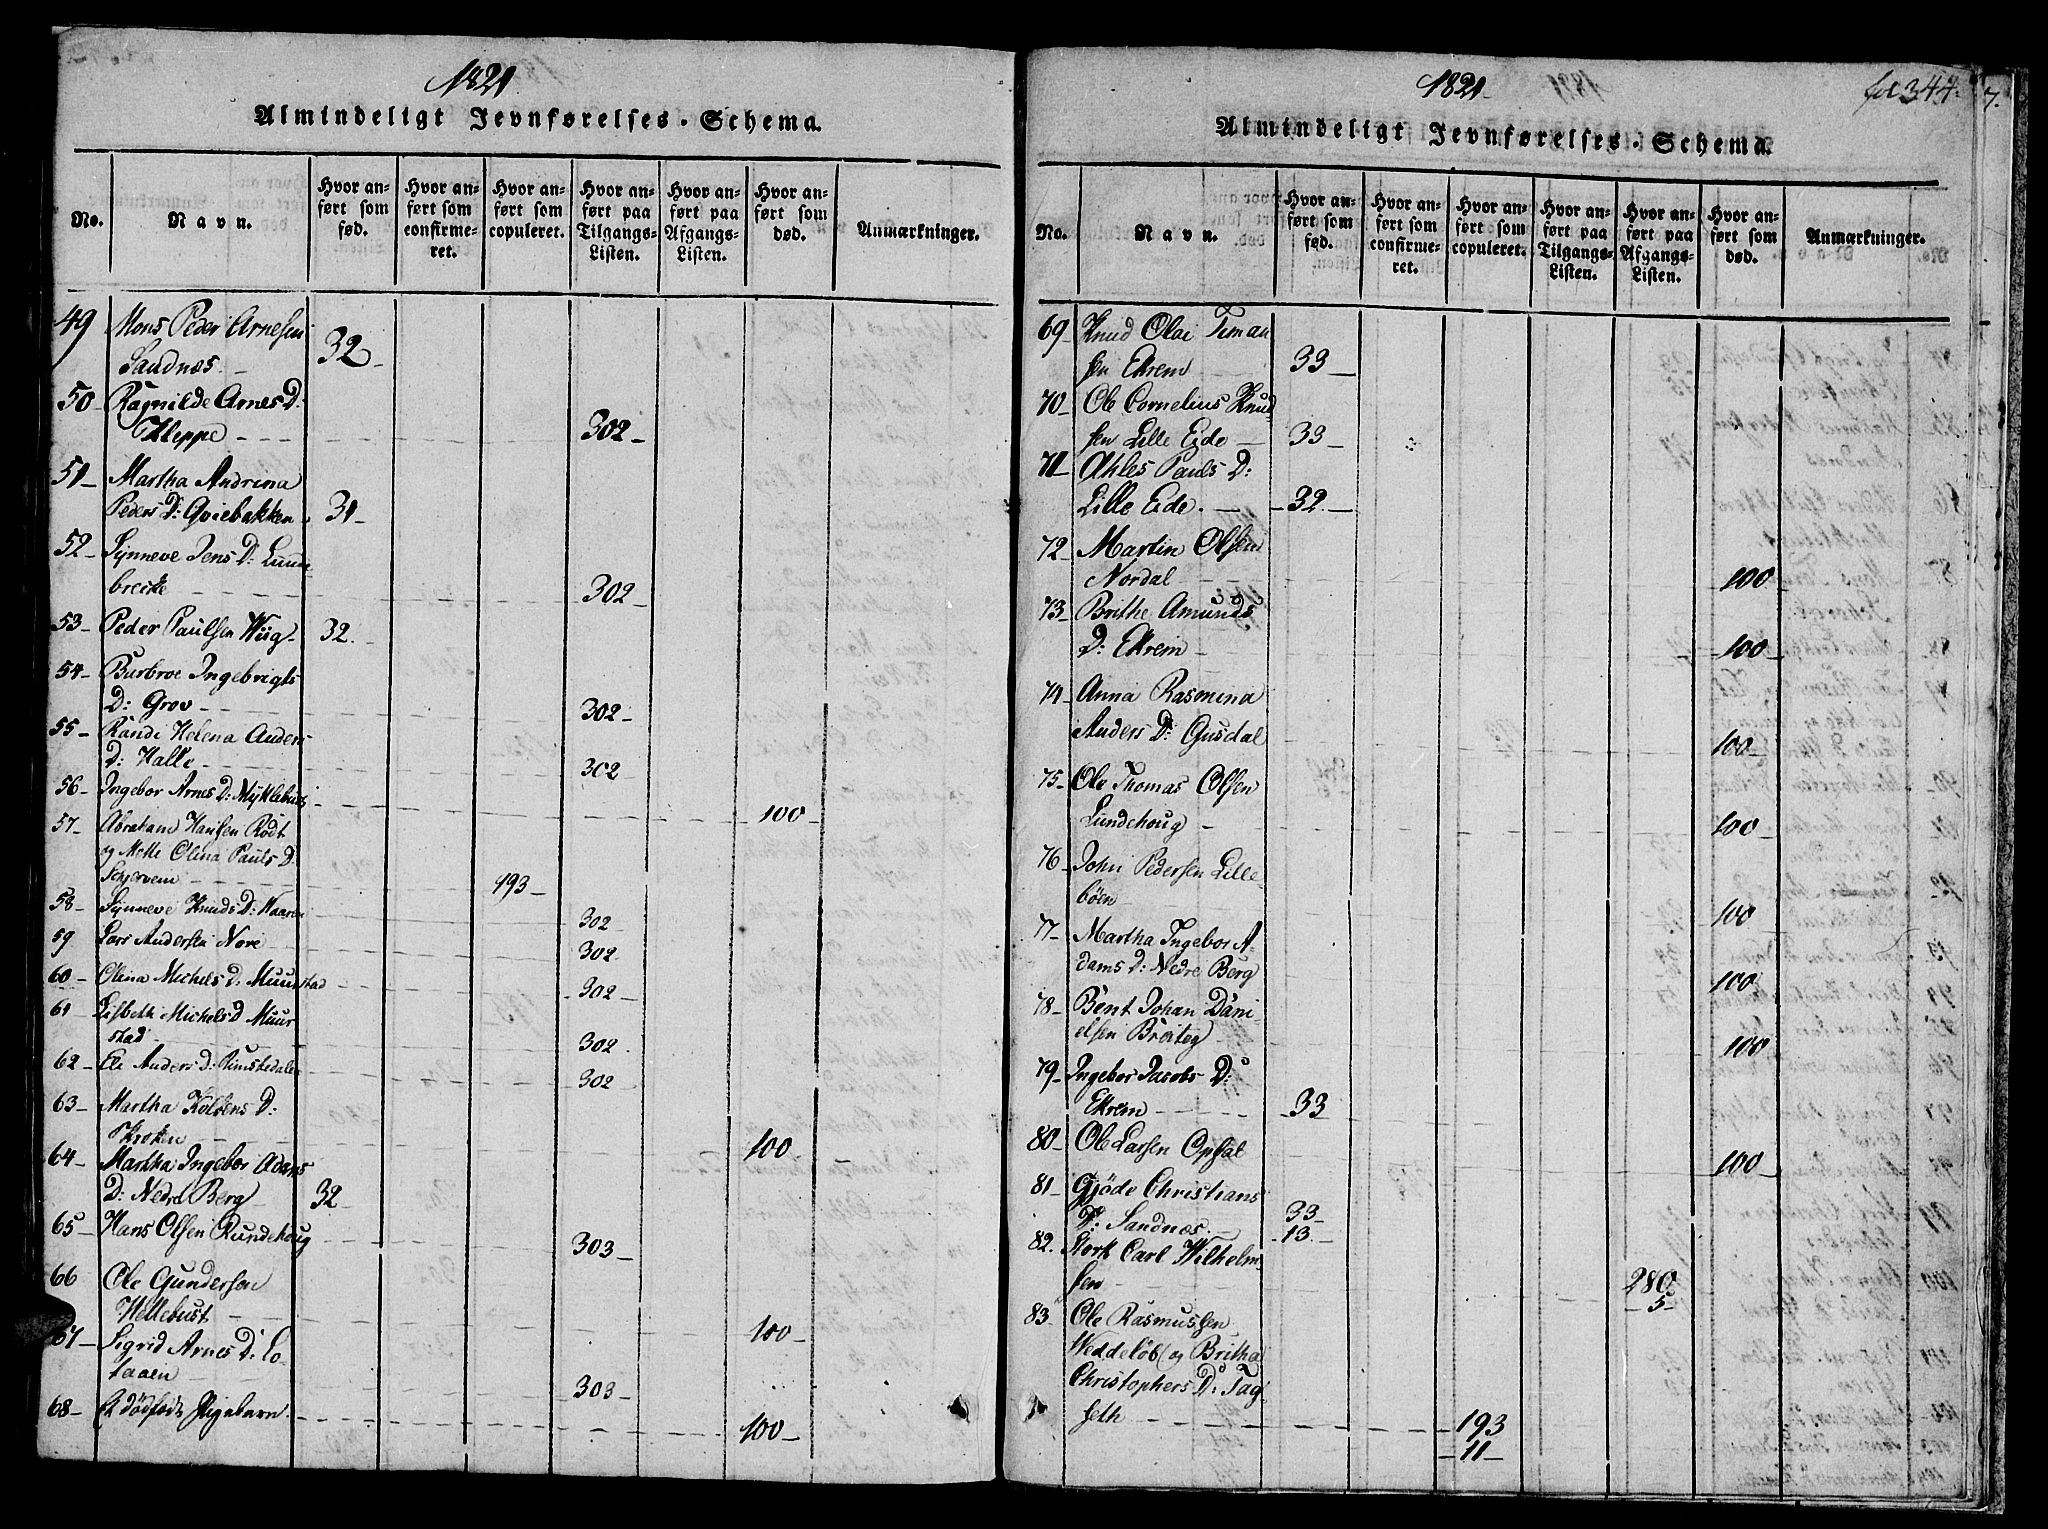 1821
Almindeligt Jevnførelses-Schema.
No.
Navn.
Hvor anført som fød.
Hvor anført som confirmeret.
Hvor anført som copuleret.
Hvor anført paa Tilgangs-Listen.
Hvor anført paa Afgangs-Listen.
Hvor anført som død.
Anmærkninger.
49 Mons Peder Arnesen
Sandnæs 32
50 Ragnilde Arnes D:
Kleppe 302
51 Martha Andrina
Peders D: 31
52 Synneve Jens D: Lunde
brecke 302
53 Peder Paulsen Wiig 32.
54 Barbroe Ingebrigts
D: Grov 302
55 Randi Helena Anders
D: Halle 302
56 Ingebor Arnes D: Myklebust 100
57 Abraham Hansen Rødt
og Mette Olina Pauls D.
193
58 Synneve Knuds D: 302
59 Lars Andersen Nore 302
60 Olina Michels D. Muurstad 302
61 Lisbeth Michels D Muur
stad 302.
62 Eli Anders D: Rimstedalen 302
63 Martha D:
Kroken 100
64 Martha Ingebor Adams
D: Nedre Berg 32
65 Hans Olsen Rundehoug 303
66 Ole Gundersen
Hellebust 100
67 Sigrid Arnes D:
303
68 Et dødfødt Pigebarn 100
1821
fol 344
7.
Almindeligt Jevnførelses-Schema.
No.
Navn.
Hvor anført som fød.
Hvor anført som confirmeret.
Hvor anført som copuleret.
Hvor anført paa Tilgangs-Listen.
Hvor anført paa Afgangs-Listen.
Hvor anført som død.
Anmærkninger.
69 Knud Olai Timan
sen Ekrem 33
70 Ole Cornelius Knud
sen Lille Eide 33
71 Ahles Pauls D:
Lille Eide. 32.
72 Martin Olsen
Nordal 100
73 Brithe Amunds
D: Ekrem 100
74 Anna Rasmina
Anders D: Gusdal 100
75 Ole Thomas Olsen
Lundehoug 100
76 John Pedersen Lille
bøen 100
77 Martha Ingebor A-
dams D: Nedre Berg 100
78 Bent Johan Dani
elsen Brøiteg 100
79 Ingebor Jacobs D:
Ekrem 33
80 Ole Larsen Opsal 100
81 Gjøde Christians
D: Sandnæs. 33
13.
82. Stork Carl Wilhelm
sen 280.
5
83. Ole Rasmussen
Weddeløb og Britha
Christophers D: Tag
seth 193
11